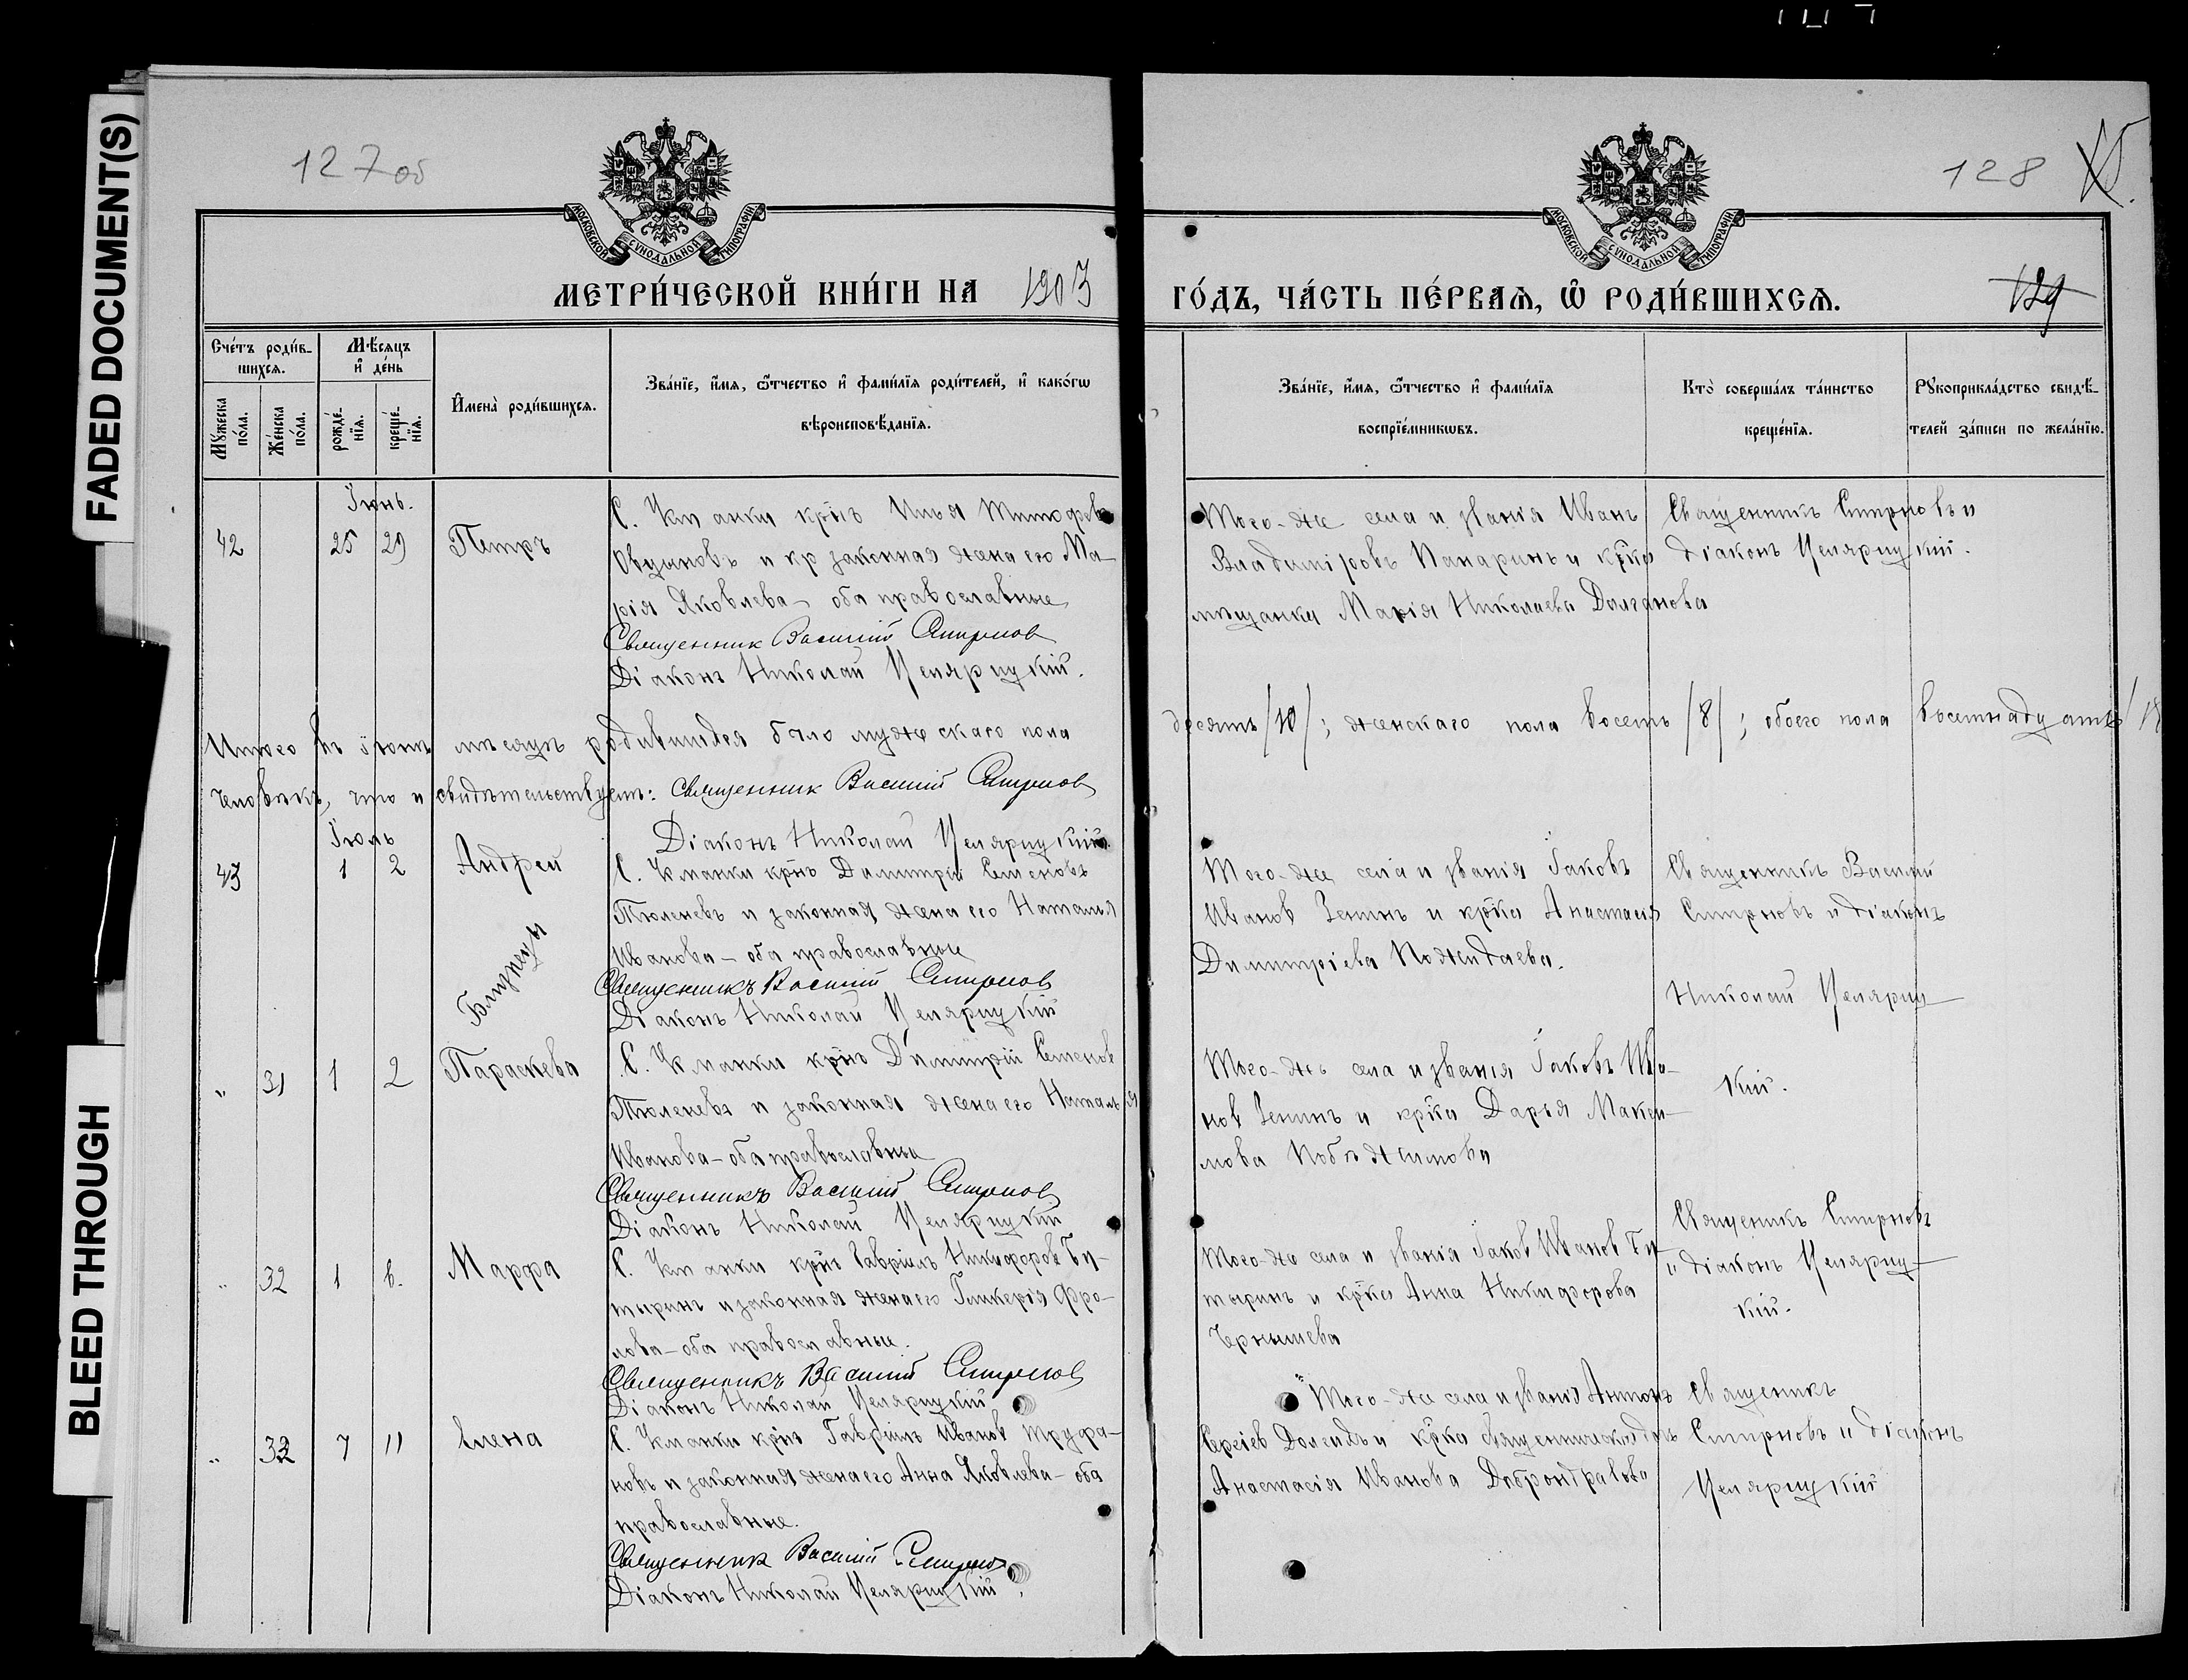 FADED DOCUMENT(S)
BLEED THROUGH
127 об
128
129
МОСКОВСКОЙ СѴНОДАЛЬНОЙ ТИПОГРАФІИ
МОСКОВСКОЙ СѴНОДАЛЬНОЙ ТИПОГРАФІИ
МЕТРИ́ЧЕСКОЙ КНИ́ГИ НА 1903
ГО́ДЪ, ЧА́СТЬ ПЕ́РВАѦ, Ѽ РОДИ́ВШИХСѦ.
Сче́тъ роди́в-
шихсѧ.
Мꙋ́жеска по́ла.
Же́нска по́ла.
Мѣ́сѧцъ
и҆ де́нь
рожде́нїѧ.
креще́нїѧ.
И҆мена̀ роди́вшихсѧ.
Зва́нїе, и҆́мѧ, ѻ҆́тчество и҆ фами́лїѧ роди́телей, и҆ како́гѡ
вѣроисповѣ́данїѧ.
Зва́нїе, и҆́мѧ, ѻ҆́тчество и҆ фами́лїѧ
воспрїе́мникѡвъ.
Кто̀ соверша́лъ та́инство
креще́нїѧ.
Рꙋкоприкла́дство свидѣ́-
телей за́писи по жела́нїю.
Іюнь.
42 25 29 Петръ
С. Уманки крнъ Илья Тимофеев
Овчиновъ и кр законная жена его Ма-
рія Яковлева - оба православные
Священник Василій Смирнов
Діаконъ Николай Целярицкій.
Того-же села и званія Иванъ
Владиміровъ Панаринъ и крка
мѣщанка Марія Николаева Долганова
Священникъ Смирновъ и
діаконъ Целярицкій.
Итого въ іюнѣ мѣсяцѣ родившихся было мужескаго пола
десять /10/; женскаго пола восемь /8/; обоего пола восемнадцать /18
человѣкъ, что и свидѣтельствуемъ: Священник Василій Смирнов
Діаконъ Николай Целярицкій.
Іюль
43 1 2 Андрей
С. Уманки крнъ Димитрій Семеновъ
Тюленевъ и законная жена его Наталья
Иванова - оба православные
Священникъ Василій Смирнов
Діаконъ Николай Целярицкій
Того-же села и званія Іаковъ
Иванов Зенинъ и крка Анастасія
Димитріева Пожидаева.
Священникъ Василій
Смирновъ и діаконъ
Николай Целяриц-
кій.
Близнецы
" 31 1 2 Параскева
С. Уманки крнъ Димитрій Семенов
Тюленевъ и законная жена его Наталья
Иванова - оба православные
Священникъ Василій Смирнов
Діаконъ Николай Целярицкій
Того-же села и званія Іаковъ Ива-
нов Зенинъ и крка Дарья Макси-
мова
" 32 1 6. Марфа
С. Уманки крнъ Гавріилъ Никифоров Бу-
тыринъ и законная жена его Гликерія Фро-
лова - оба православные.
Священникъ Василій Смирнов
Діаконъ Николай Целярицкій
Того-же села и званія Іаков Иванов Бу-
тыринъ и крка Анна Никифорова
Чернышева
Священикъ Смирновъ
и діаконъ Целяриц-
кій.
" 32 7 11 Елена
С. Уманки крнъ Гавріилъ Иванов Труфа-
новъ и законная жена его Анна Яковлева - оба
православные.
Священник Василій Смирнов
Діаконъ Николай Целярицкій
Того-же села и званія Антонъ
Сергіев и крка священническая дочь
Анастасія Иванова Добронравова
Священикъ
Смирновъ и діаконъ
Целярицкій